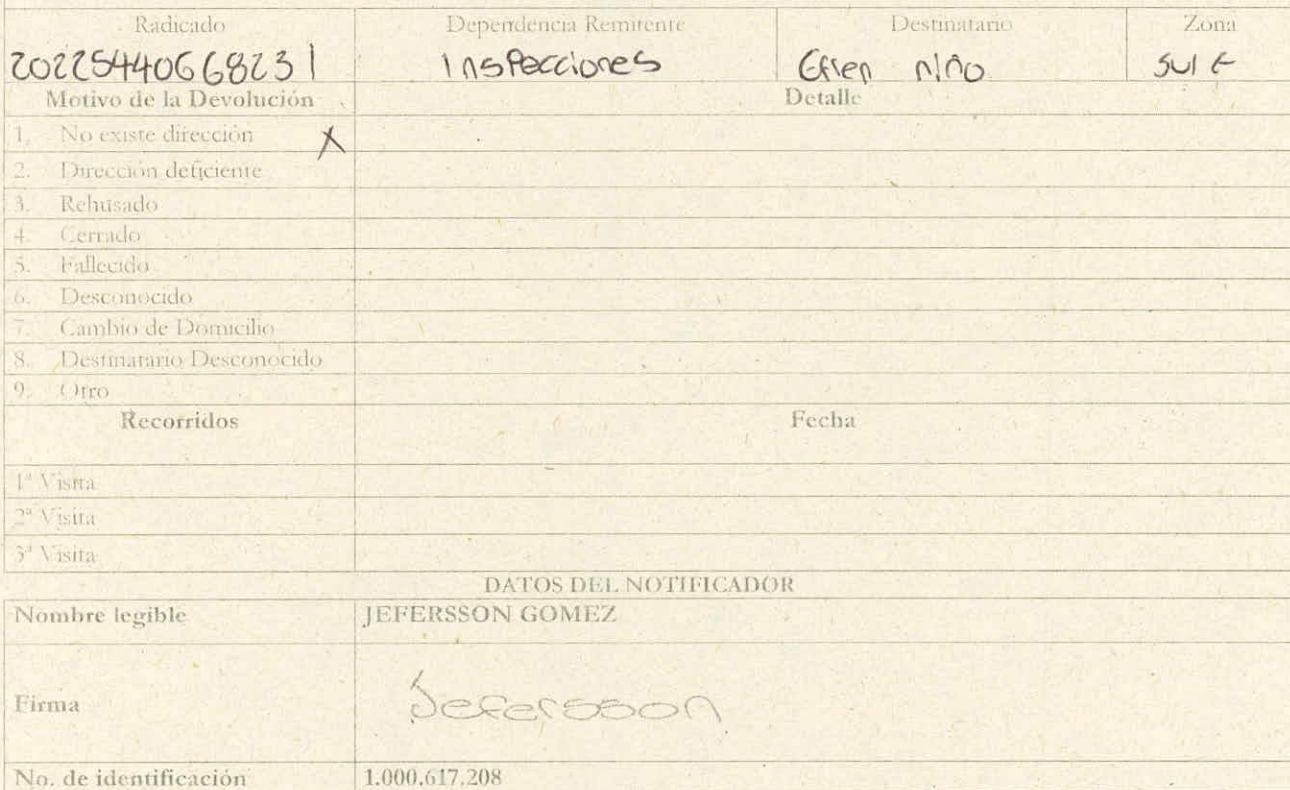 Radicado Dependencia Remitente Destinatario Zona
20225440668231 Inspecciones Efren niño
Motivo de la Devolución Detalle
1. No existe dirección X
2. Dirección deficiente
3. Rehusado
4. Cerrado
5. Fallecido
6. Desconocido
7. Cambio de Domicilio
8. Destinatario Desconocido
9. Otro
Recorridos Fecha
1ª Visita
2ª Visita
3ª Visita
DATOS DEL NOTIFICADOR
Nombre legible JEFERSSON GOMEZ
Firma Jefersson
No. de identificación 1.000.617.208